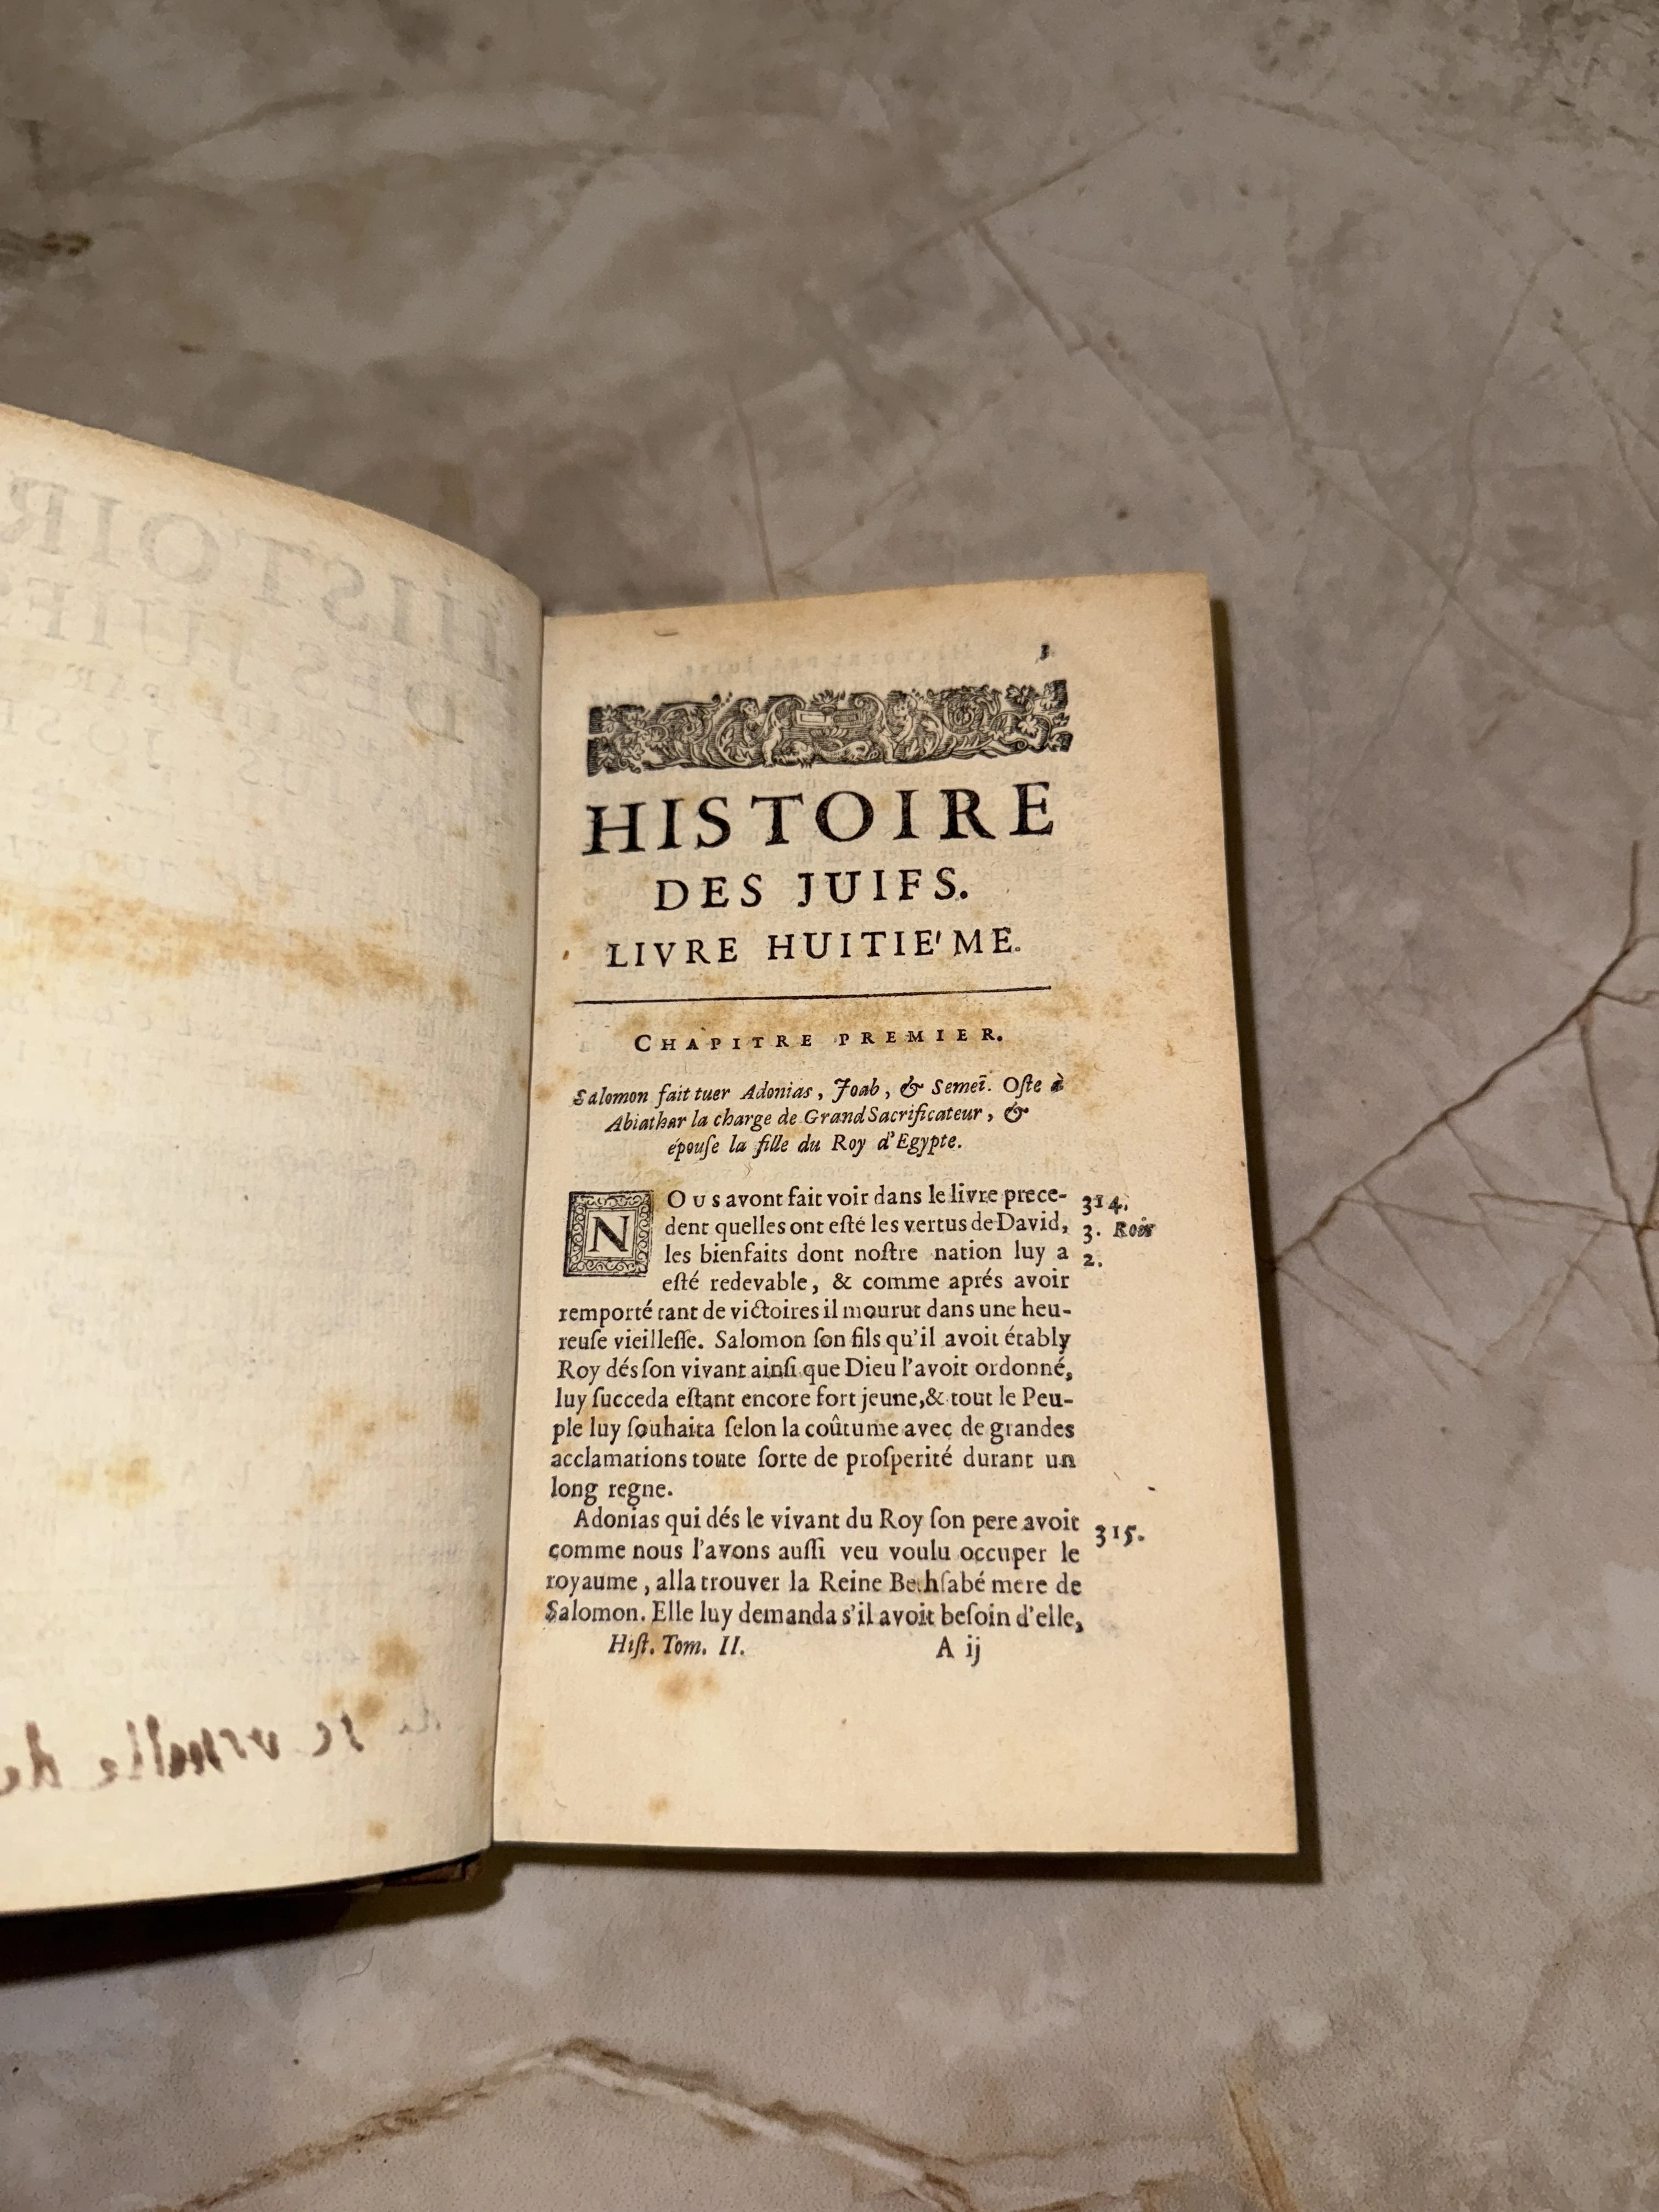 1
HISTOIRE
DES JUIFS.
LIVRE HUITIE'ME.
CHAPITRE PREMIER.
Salomon fait tuer Adonias, Joab, & Semeï. Oſte à
Abiathar la charge de Grand Sacrificateur, &
épouſe la fille du Roy d'Egypte.
NOus avont fait voir dans le livre prece- 314.
dent quelles ont eſté les vertus de David, 3. Rois
les bienfaits dont noſtre nation luy a 2.
eſté redevable, & comme aprés avoir
remporté tant de victoires il mourut dans une heu-
reuſe vieilleſſe. Salomon ſon fils qu'il avoit étably
Roy dés ſon vivant ainſi que Dieu l'avoit ordonné,
luy ſucceda eſtant encore fort jeune, & tout le Peu-
ple luy ſouhaita ſelon la coûtume avec de grandes
acclamations toute ſorte de proſperité durant un
long regne.
Adonias qui dés le vivant du Roy ſon pere avoit 315.
comme nous l'avons auſſi veu voulu occuper le
royaume, alla trouver la Reine Bethſabé mere de
Salomon. Elle luy demanda s'il avoit beſoin d'elle,
Hiſt. Tom. II. A ij